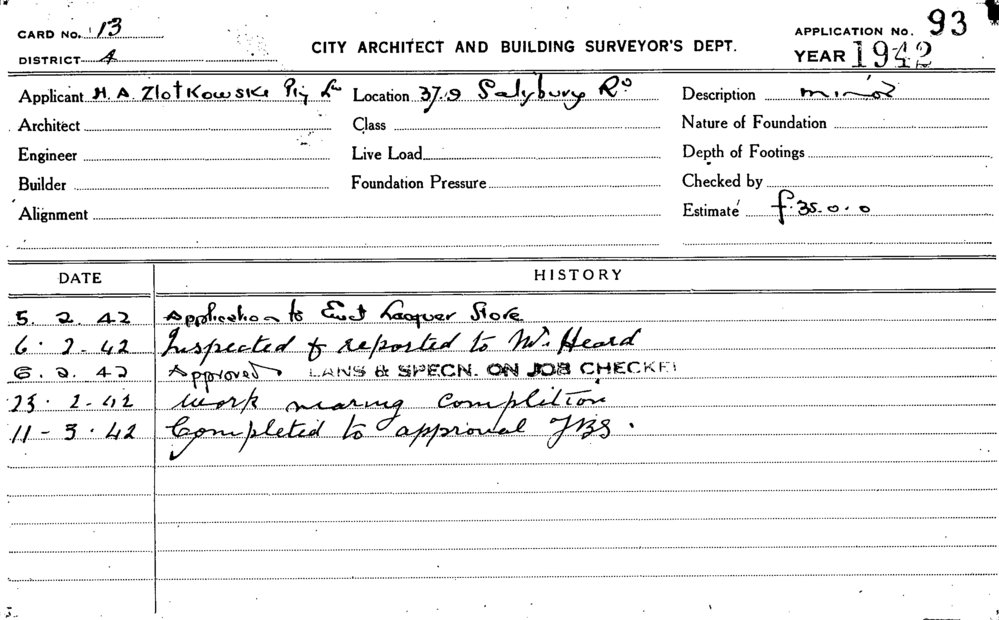 CARD No. 13
APPLICATION No. 93
DISTRICT 4
CITY ARCHITECT AND BUILDING SURVEYOR'S DEPT.
YEAR 1942
Applicant H. A. Zlotkowski Pty Ld Location 37.9 Salisbury Rd Description minor
Architect Class Nature of Foundation
Engineer Live Load Depth of Footings
Builder Foundation Pressure Checked by
Alignment Estimate £35.0.0
DATE HISTORY
5. 2. 42 Application to Erect Lacquer Store
6. 2. 42 Inspected & reported to Mr Heard
6. 2. 42 Approved LANS & SPECN. ON JOB CHECKE
23. 2. 42 Work nearing completion
11 - 3. 42 Completed to approval